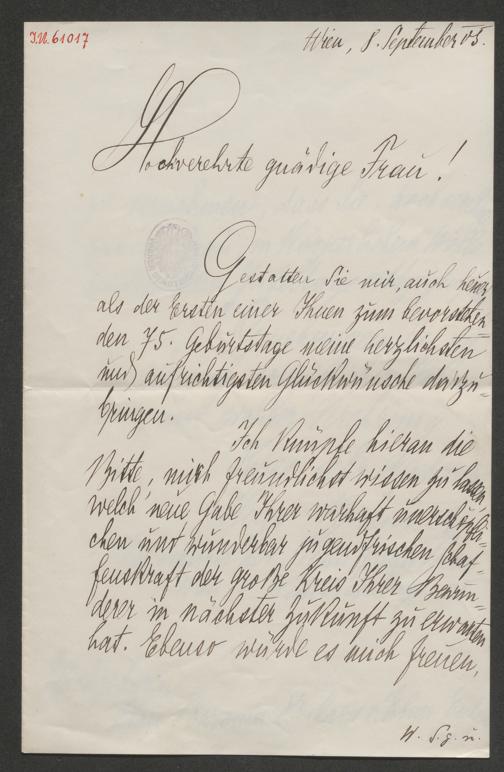 I.N. 61017
Wien, 8. September 05.
Hochverehrte gnädige Frau!
Gestatten Sie mir, auch heuer
als der Ersten einer Ihnen zum bevorstehen-
den 75. Geburtstage meine herzlichsten
und aufrichtigsten Glückwünsche darzu-
bringen.
Ich knüpfe hieran die
Bitte, mich freundlichst wissen zu lassen,
welch' neue Gabe Ihrer warhaft unerschöpfli-
chen und wunderbar jugendfrischen Schaf-
fenskraft der große Kreis Ihrer Bewun-
derer in nächster Zukunft zu erwarten
hat. Ebenso würde es mich freuen,